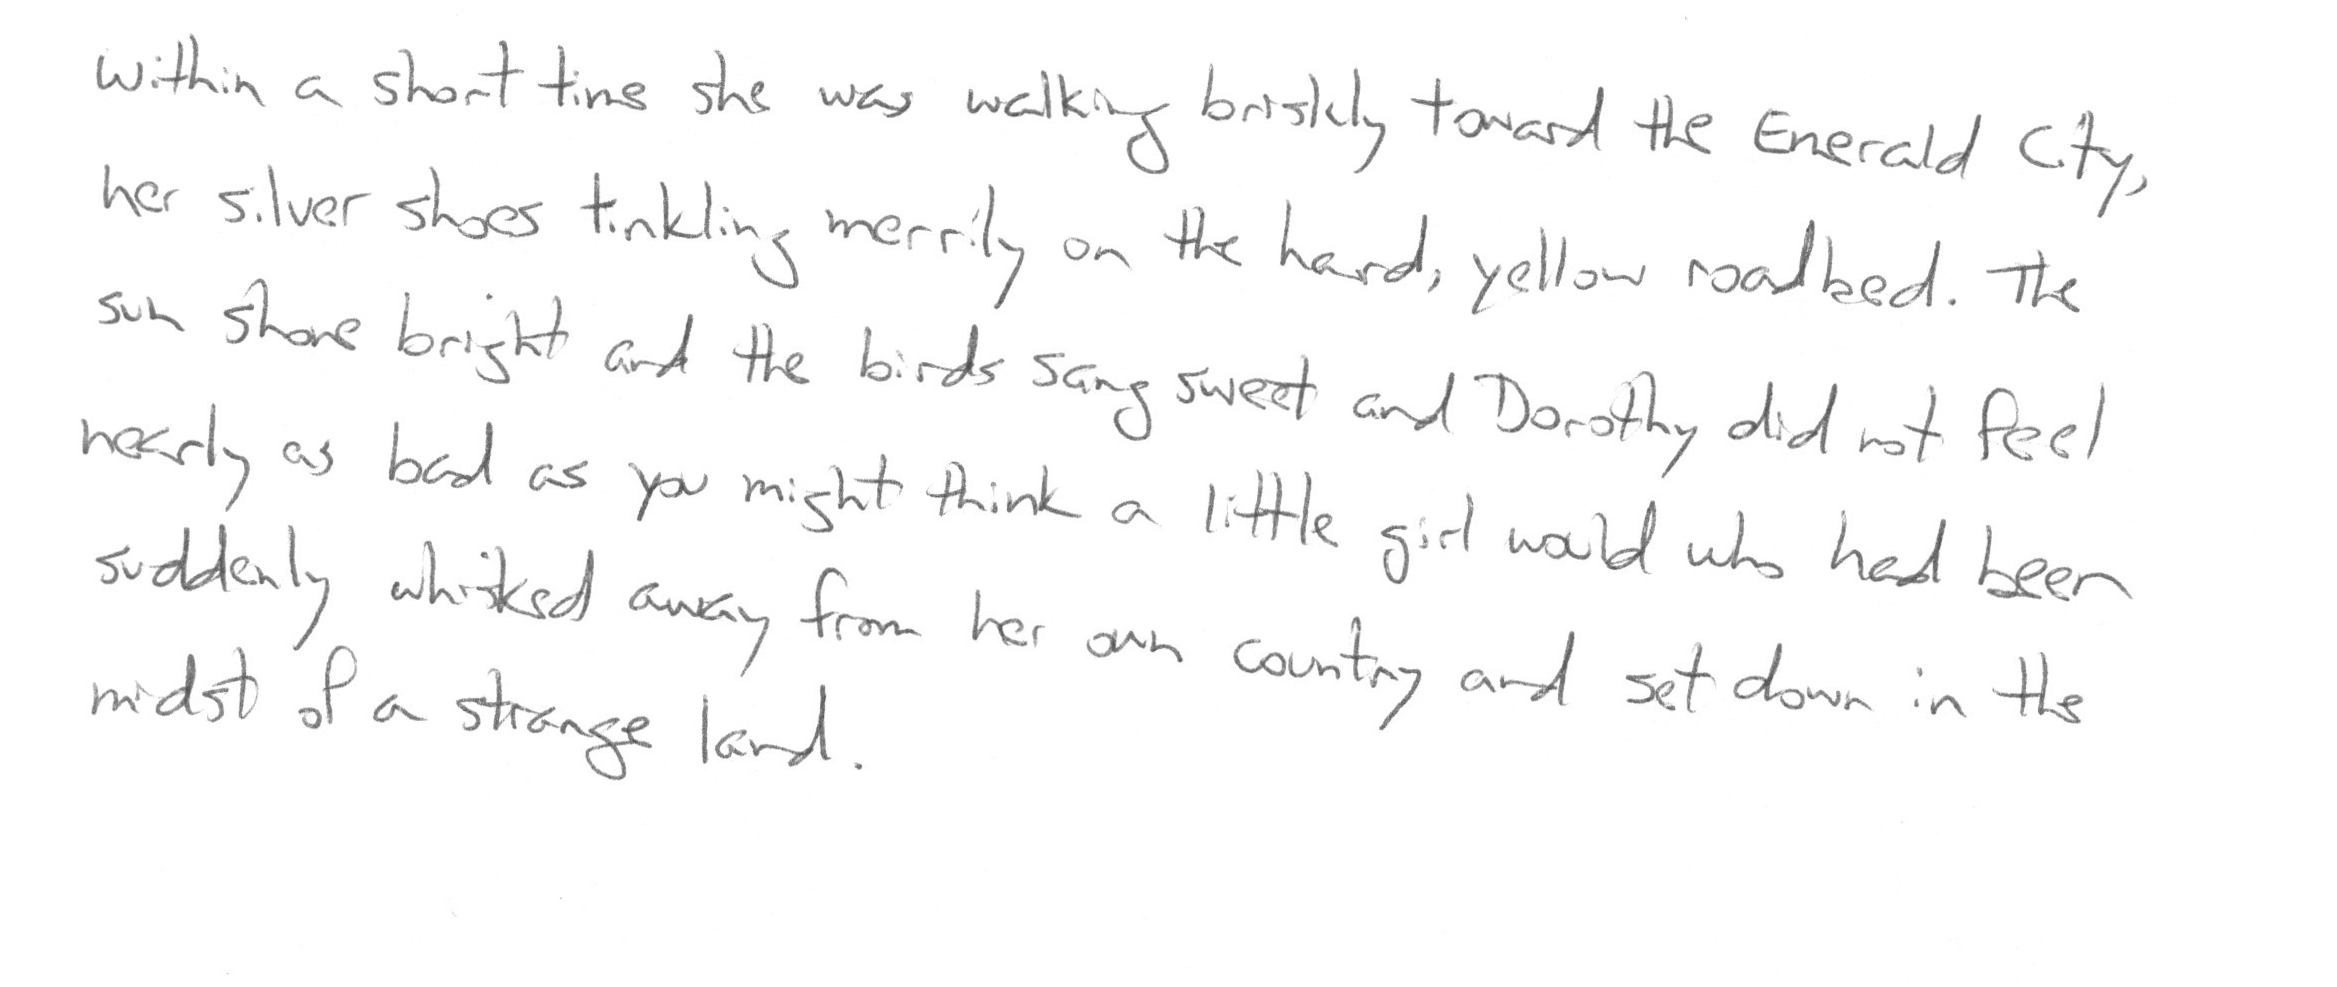 Within a short time she was walking briskly toward the Emerald City,
her silver shoes tinkling merrily on the hard, yellow roadbed. The
sun shone bright and the birds sang sweet and Dorothy did not feel
nearly as bad as you might think a little girl would who had been
suddenly whisked away from her own country and set down in the
midst of a strange land.